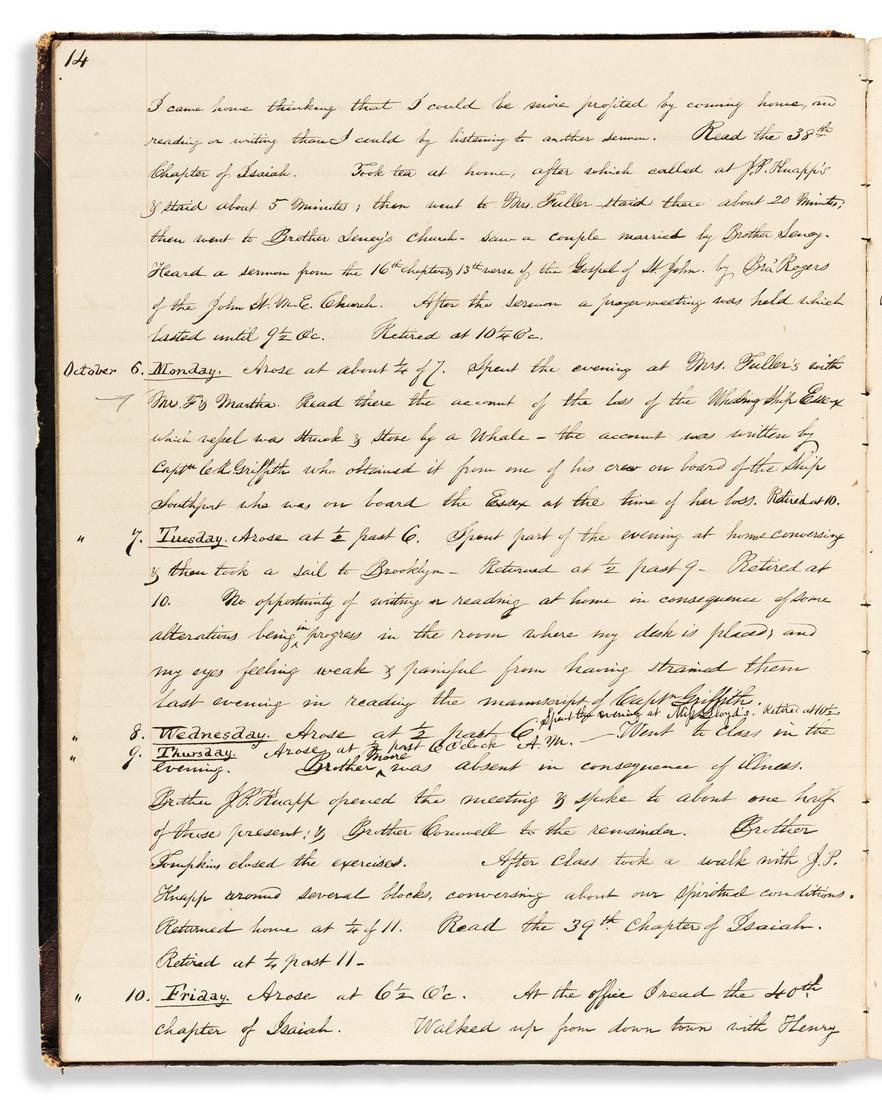 14
I came home thinking that I could be more profited by coming home, and
reading or writing than I could by listening to another sermon. Read the 38th
Chapter of Isaiah. Took tea at home, after which called at J.P. Knapp's
& staid about 5 Minutes; then went to Mrs. Fuller staid there about 20 Minutes;
then went to Brother Seney's church - saw a couple married by Brother Seney.
Heard a sermon from the 16th chapter & 13th verse of the Gospel of St. John. by Bro' Rogers
of the John St. M.E. Church. After the sermon a prayer meeting was held which
lasted until 9½ O'c. Retired at 10¼ O'c.
October 6. Monday. Arose at about ¼ of 7. Spent the evening at Mrs. Fuller's with
Mr. F & Martha. Read there the account of the loss of the Whaling Ship Essex
which vessel was struck & stove by a Whale - the account was written by
Captn C.K. Griffith who obtained it from one of his crew on board of the Ship
Southport who was on board the Essex at the time of her loss. Retired at 10.
" 7. Tuesday. Arose at ½ past 6. Spent part of the evening at home conversing
& then took a sail to Brooklyn - Returned at ½ past 9 - Retired at
10. No opportunity of writing or reading at home in consequence of some
alterations being in progress in the room where my desk is placed; and
my eyes feeling weak & painful from having strained them
last evening in reading the manuscript of Captn Griffith.
" 8. Wednesday. Arose at ½ past 6. Spent the evening at Miss Lloyd's. Retired at 10½
" 9. Thursday. Arose at ½ past 6 O'clock A.M. - Went to class in the
evening. Brother Moore was absent in consequence of illness.
Brother J.P. Knapp opened the meeting & spoke to about one half
of those present; & Brother Cornwell to the remainder. Brother
Tompkins closed the exercises. After class took a walk with J.P.
Knapp around several blocks, conversing about our spiritual conditions.
Returned home at ¼ of 11. Read the 39th Chapter of Isaiah.
Retired at ¼ past 11 -
" 10. Friday. Arose at 6½ O'c. At the office I read the 40th
chapter of Isaiah. Walked up from down town with Henry